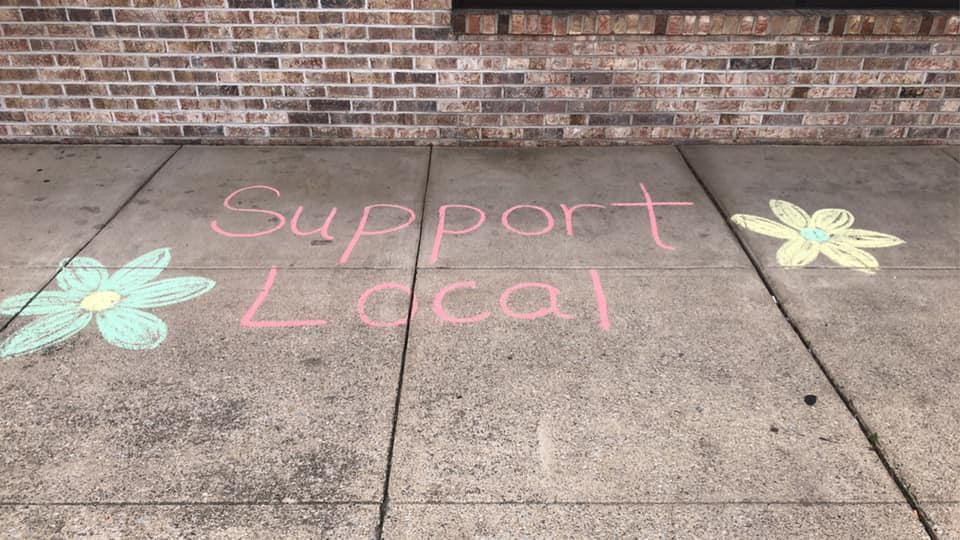 Support
Local